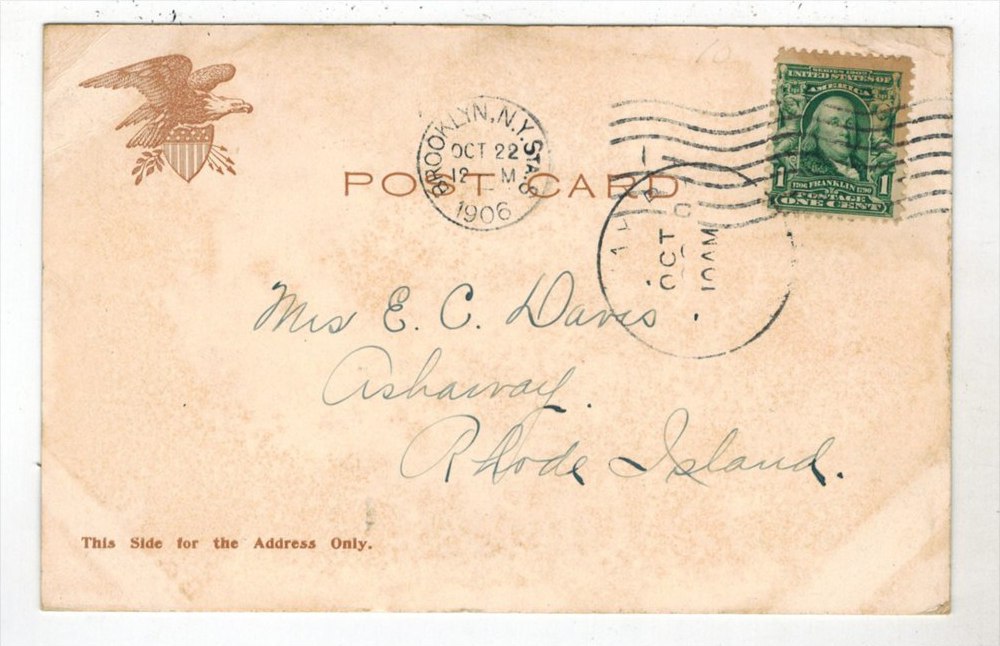 BROOKLYN, N.Y. STA. S
OCT 22
12 M
1906
SERIES 1902
UNITED STATES OF
AMERICA
1 1706 FRANKLIN 1790 1
POSTAGE
ONE CENT
POST CARD
OCT
10AM
Mrs E. C. Davis.
Ashaway.
Rhode Island.
This Side for the Address Only.